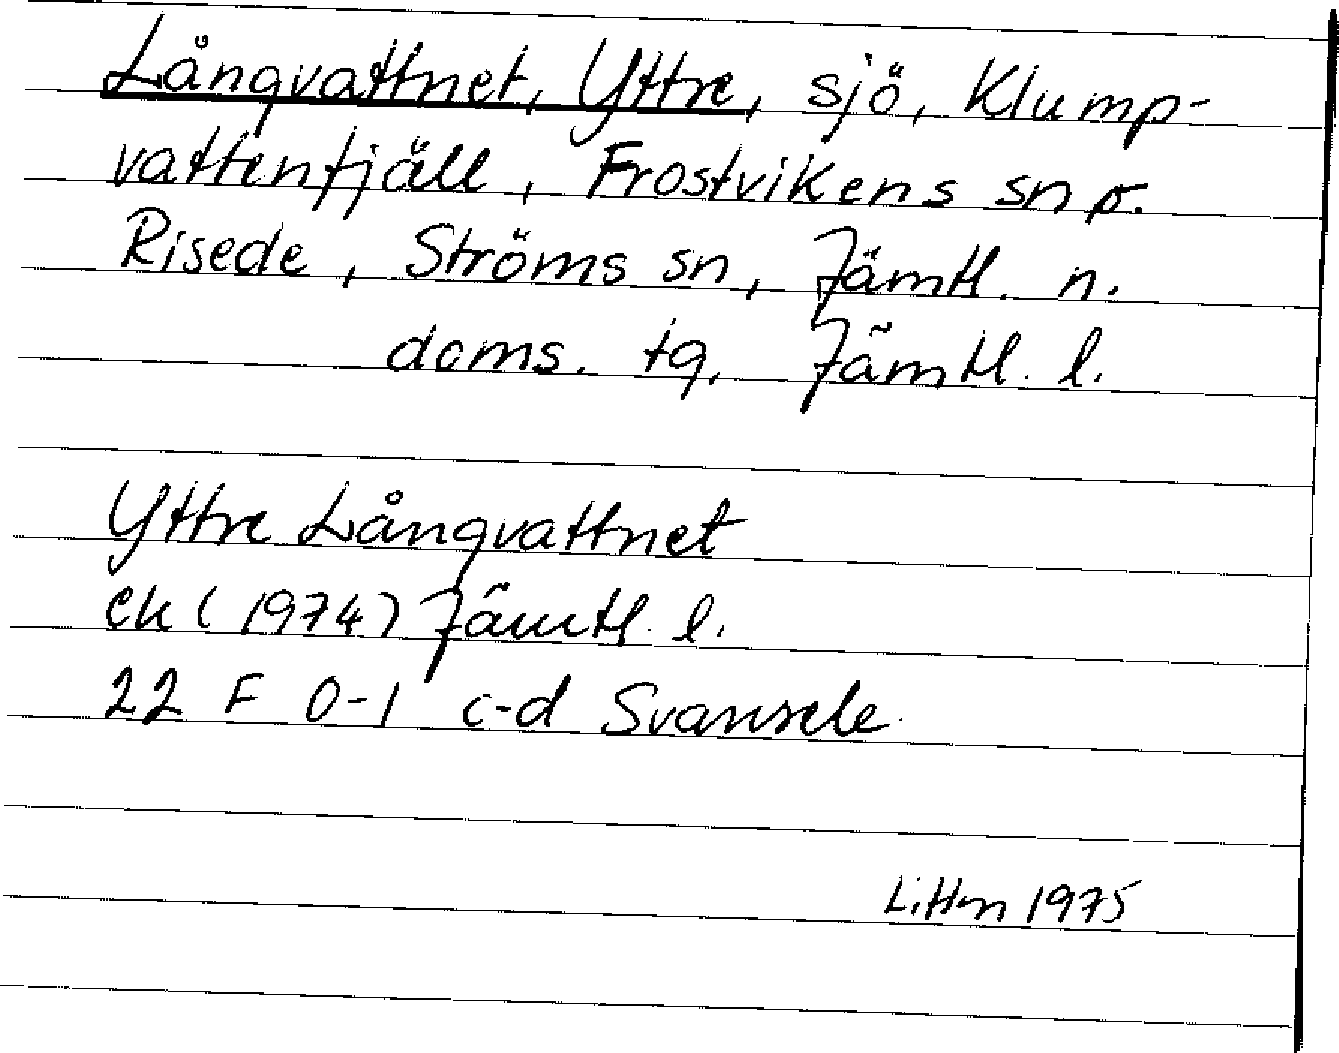 Långvattnet, Yttre, sjö, Klump-
vattenfjäll, Frostvikens sn o.
Risede, Ströms sn, Jämtl. n.
doms. tg, Jämtl. l.
Yttre Långvattnet
ek (1974) Jämtl. l.
22 F 0-1 c-d Svansele
Littm 1975